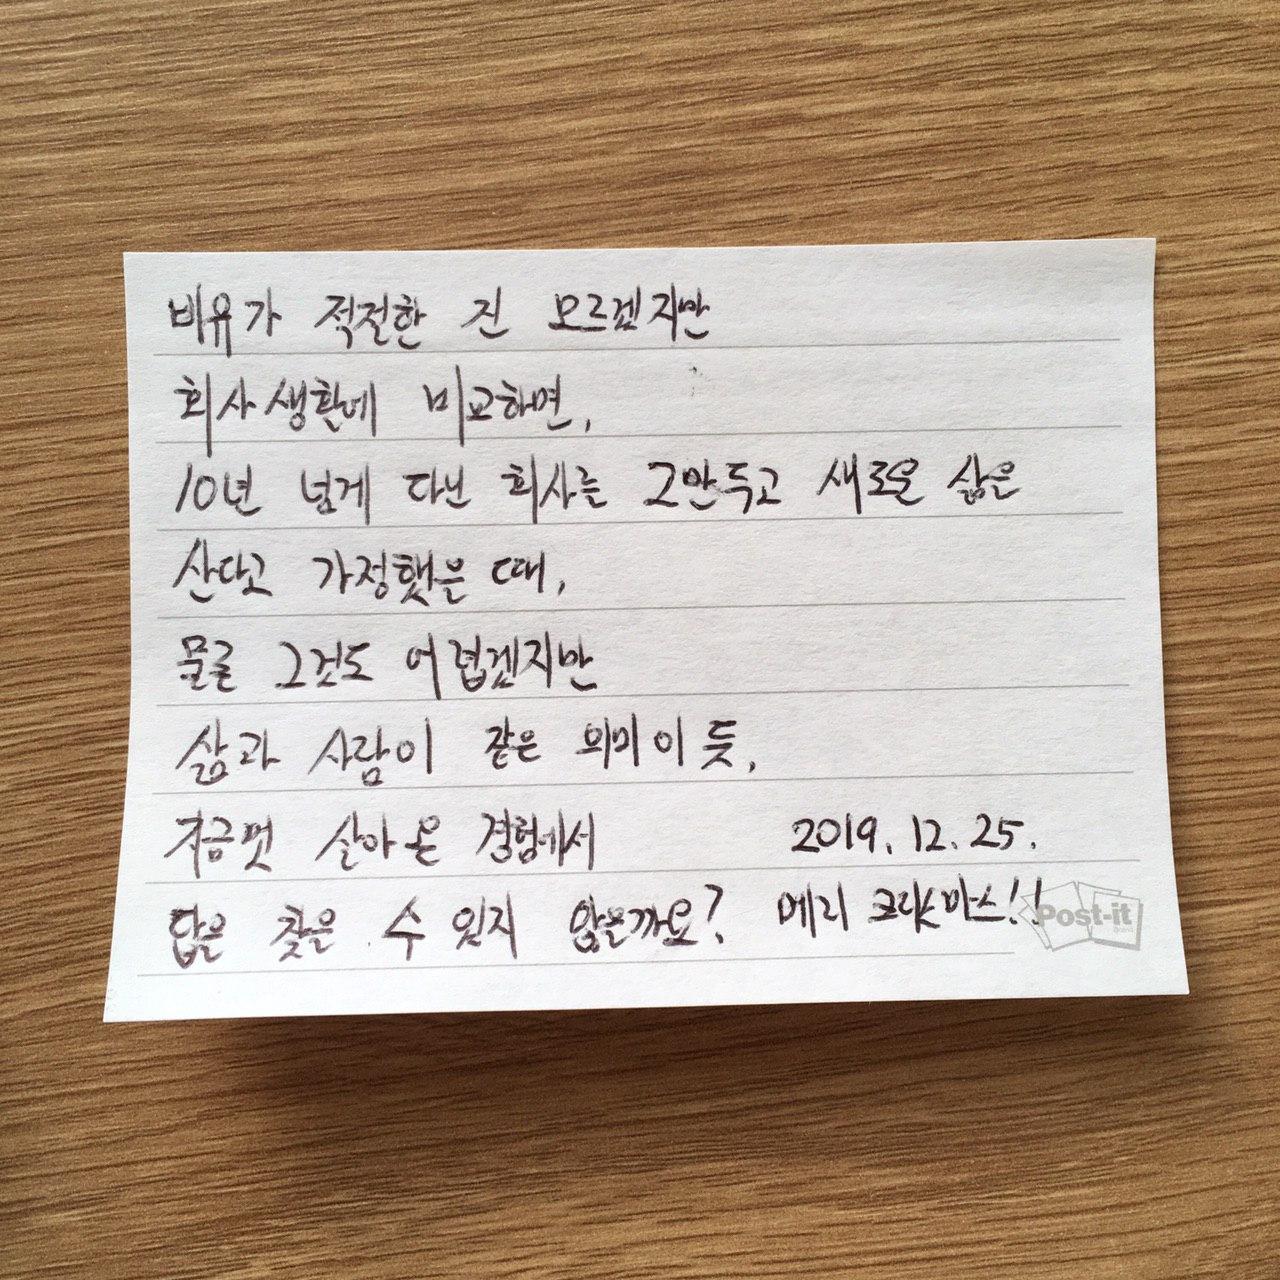 비유가 적절한 진 모르겠지만
회사생활에 비교하면,
10년 넘게 다닌 회사를 그만두고 새로운 삶을
산다고 가정했을 때,
물론 그것도 어렵겠지만
삶과 사람이 같은 의미이듯,
지금껏 살아온 경험에서
2019. 12. 25.
답을 찾을 수 있지 않을까요?
메리 크리스마스!!
Post-it
Brand